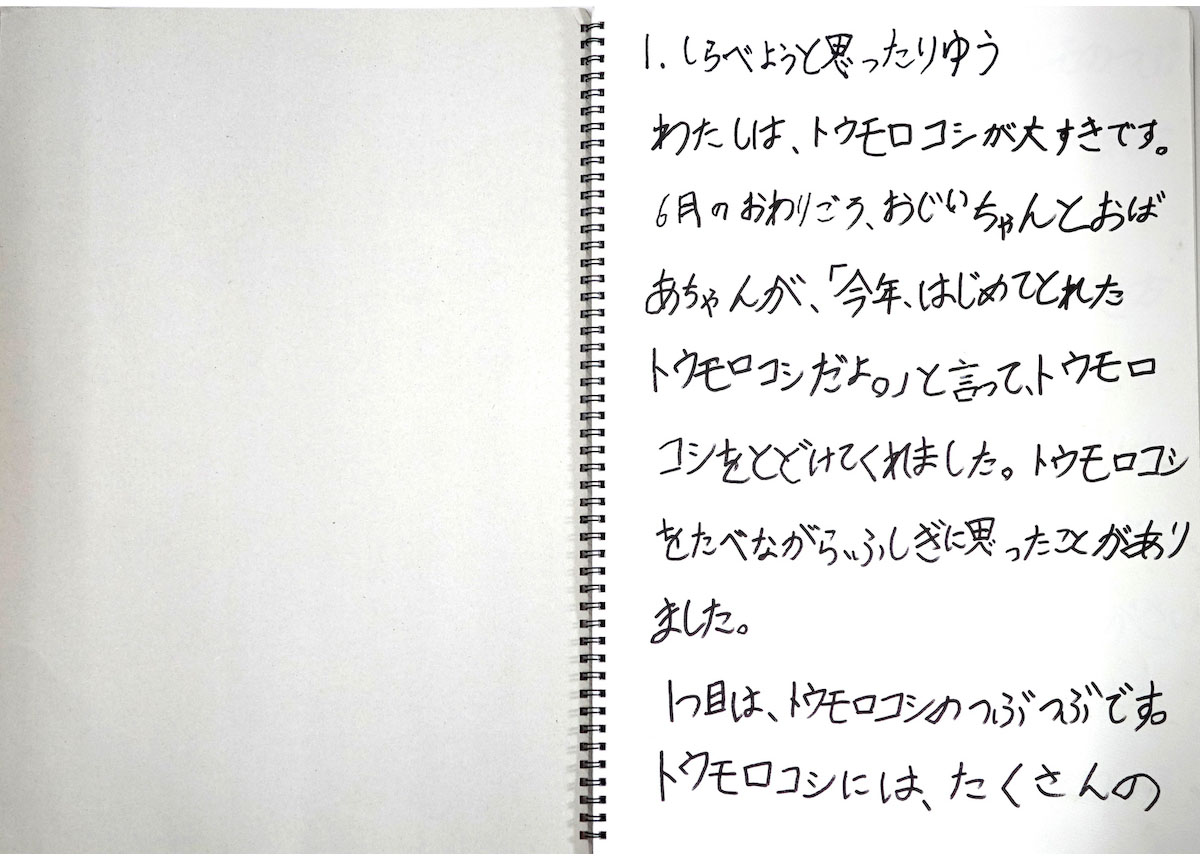 1. しらべようと思ったりゆう
わたしは、トウモロコシが大すきです。
6月のおわりごろ、おじいちゃんとおば
あちゃんが、「今年、はじめてとれた
トウモロコシだよ。」と言って、トウモロ
コシをとどけてくれました。トウモロコシ
をたべながら、ふしぎに思ったことがあり
ました。
1つ目は、トウモロコシのつぶつぶです。
トウモロコシには、たくさんの